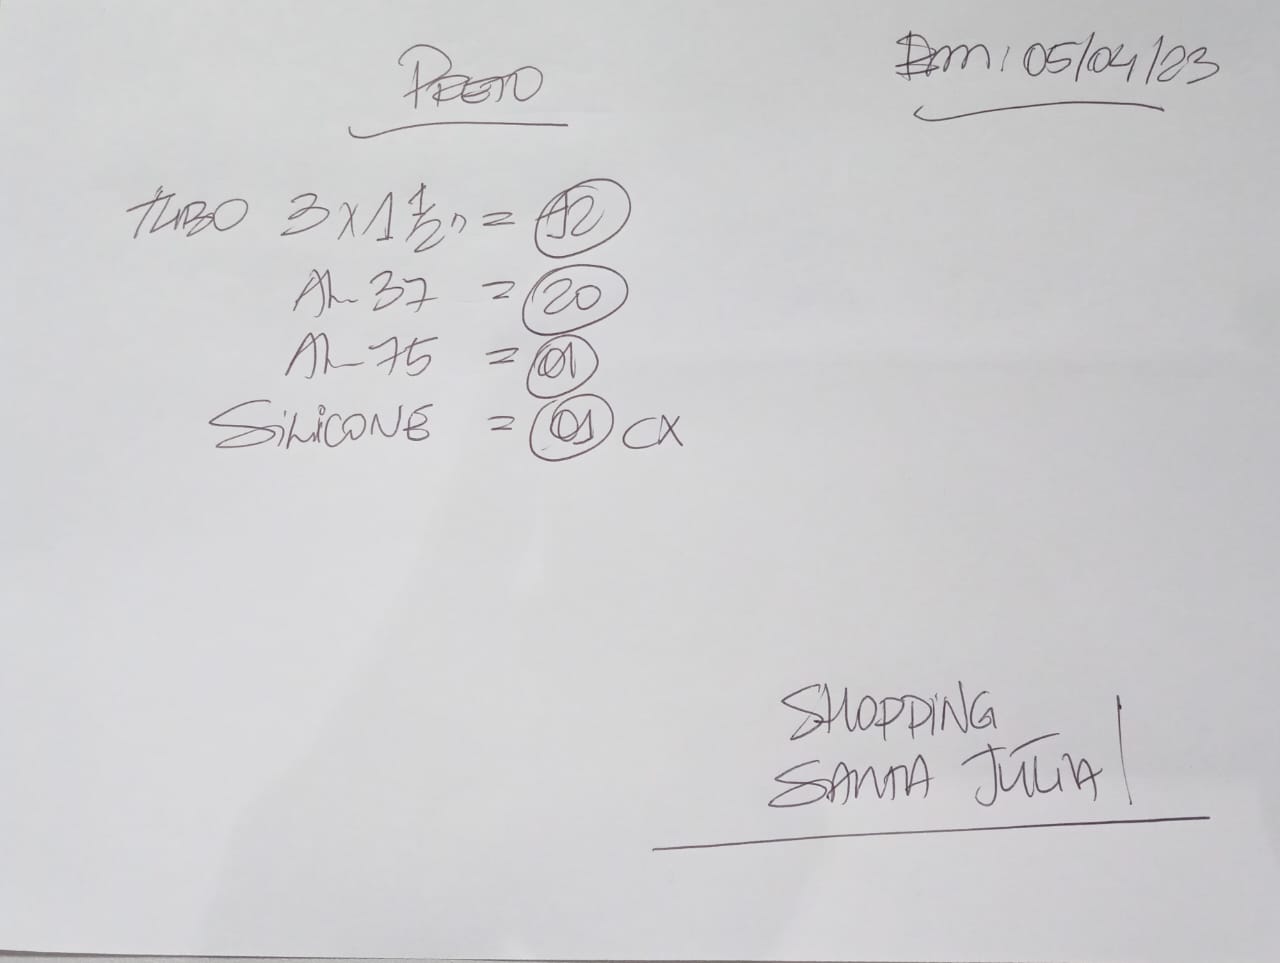 PRETO
Em: 05/04/23
TUBO 3x1 1/2" = 12
AL 37 = 20
AL 75 = 01
SILICONE = 01 CX
SHOPPING
SANTA JÚLIA